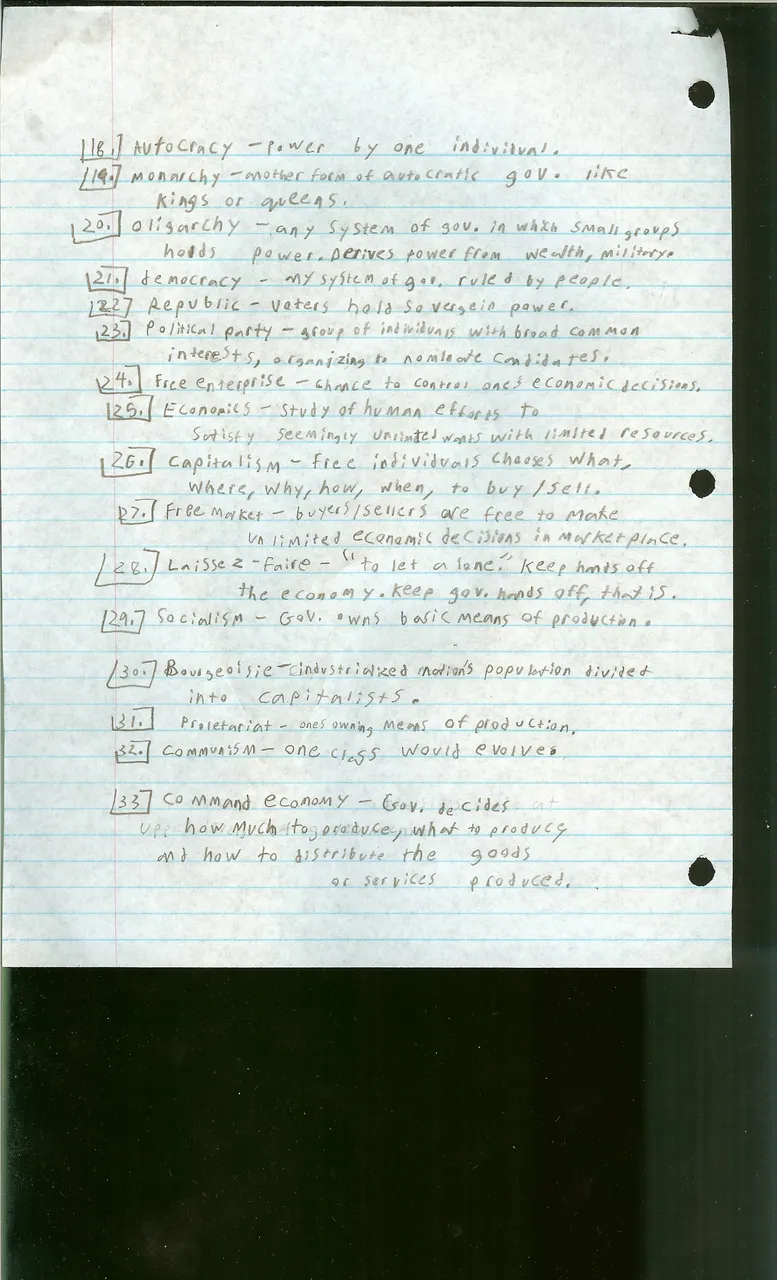 18. Autocracy - power by one individual.
19. monarchy - another form of autocratic gov. like
kings or queens.
20. oligarchy - any system of gov. in which small groups
holds power. Derives power from wealth, military.
21. democracy - any system of gov. ruled by people.
22 Republic - voters hold sovergein power.
23. Political party - group of individuals with broad common
interests, organizing to nominate candidates.
24. Free enterprise - chance to control one's economic decisions.
25. Economics - study of human efforts to
satisfy seemingly unlimted wants with limited resources.
26. Capitalism - free individuals chooses what,
where, why, how, when, to buy/sell.
27. Free Market - buyers/sellers are free to make
unlimited economic decisions in marketplace.
28. Laissez-faire - "to let alone." Keep hands off
the economy. Keep gov. hands off, that is.
29. Socialism - Gov. owns basic means of production.
30. Bourgeoisie - industrialized nation's population divided
into capitalists.
31. Proletariat - ones owning means of production.
32. Communism - one class would evolve.
33 Command economy - Gov. decides
how much to produce, what to produce
and how to distribute the goods
or services produced.